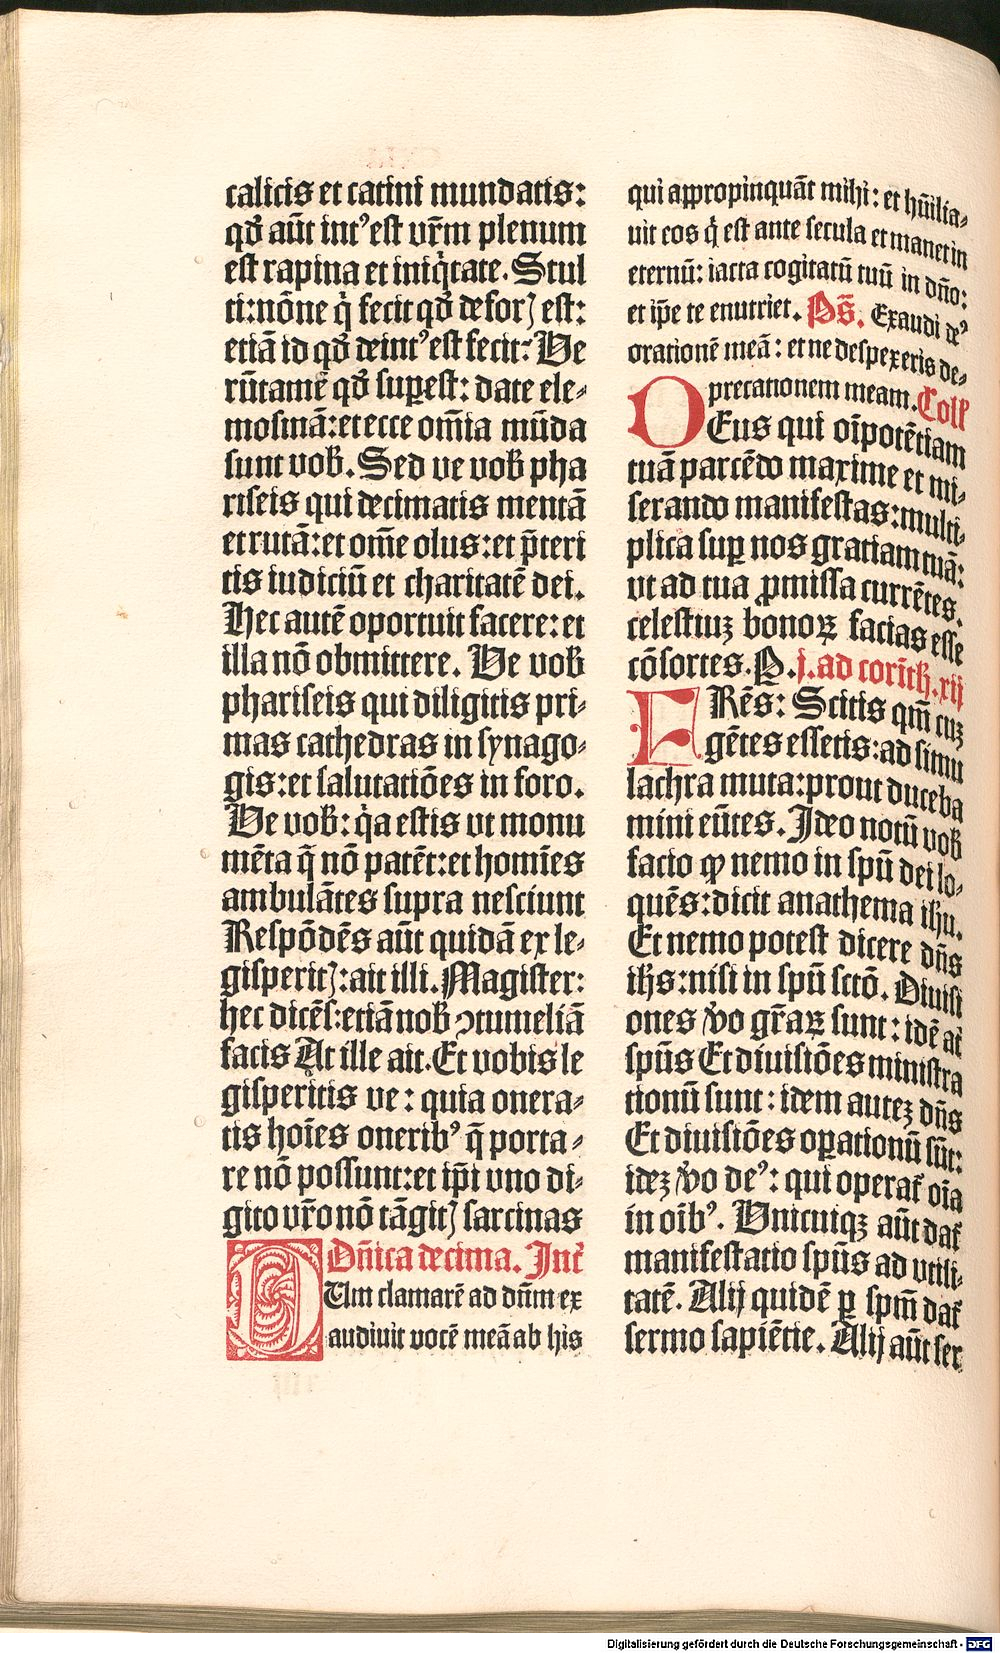 calicis et catini mundatis:
qđ aūt intꝰ est vr̄m plenum
est rapina et iniq̇tate. Stul
ti: nōne q̇ fecit qđ deforꝭ est:
etiā id qđ deintꝰ est fecit: Ve
rūtamē qđ suꝑest: date ele-
mosinā: et ecce om̄ia mūda
sunt vob̄. Sed ve vob̄ pha
riseis qui decimatis mentā
et rutā: et om̄e olus: et p̄teri
tis iudiciū et charitatē dei.
Hec autē oportuit facere: et
illa nō obmittere. Ve vob̄
phariseis qui diligitis pri-
mas cathedras in synago-
gis: et salutatiōes in foro.
Ve vob̄: q̇a estis vt monu
mēta q̄ nō patēt: et homīes
ambulātes supra nesciunt
Respōdēs aūt quidā ex le-
gisperitꝭ: ait illi. Magister:
hec dicēs: etiā nob̄ ꝯtumeliā
facis At ille ait. Et vobis le
gisperitis ve: quia onera-
tis hoīes oneribꝰ q̄ porta-
re nō possunt: et ip̄i vno di-
gito vr̄o nō tāgitꝭ sarcinas
Dn̄ica decima. Int̄
DUm clamarē ad dn̄m ex
audiuit vocē meā ab his
qui appropinquāt mihi: et hūilia-
uit eos q̇ est ante secula et manet in
eternū: iacta cogitatū tuū in dn̄o:
et ip̄e te enutriet. Ps̄. Exaudi deꝰ
orationē meā: et ne despexeris de-
precationem meam. Coll̄
DEus qui oīpotētiam
tuā parcēdo maxime et mi-
serando manifestas: multi-
plica suꝑ nos gratiam tuā:
vt ad tua ꝓmissa currētes.
celestiuꝫ bonoꝝ facias esse
cōsortes. P. j. ad corīth. xij
FRēs: Scitis qm̄ cuꝫ
gētes essetis: ad simu
lachra muta: prout duceba
mini eūtes. Ideo notū vob̄
facio ꝙ nemo in spū dei lo-
quēs: dicit anathema ihu.
Et nemo potest dicere dn̄s
ihs: nisi in spū sctō. Diuisi
ones v̓o gr̄aꝝ sunt: idē at̄
spūs Et diuisiōes ministra
tionū sunt: idem auteꝫ dn̄s
Et diuisiōes oꝑationū sūt:
ideꝫ v̓o deꝰ: qui operat̄ oīa
in oībꝰ. Vnicuiqꝫ aūt dat̄
manifestatio spūs ad vtili-
tatē. Alij quidē ꝑ spm̄ dat̄
sermo sapiētie. Alij aūt ser
Digitalisierung gefördert durch die Deutsche Forschungsgemeinschaft - DFG